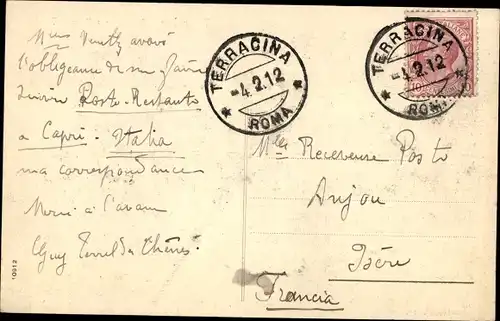 avoir
l'obligeance de me faire
suivre Poste-Restante
a Capri. Italia
ma correspondance
Merci à l'avance
Guy
TERRACINA
-4.2.12
* ROMA *
TERRACINA
-4.2.12
* ROMA *
10 10
Mlle Receveuse Poste
Anjou
Isère
Francia
10912